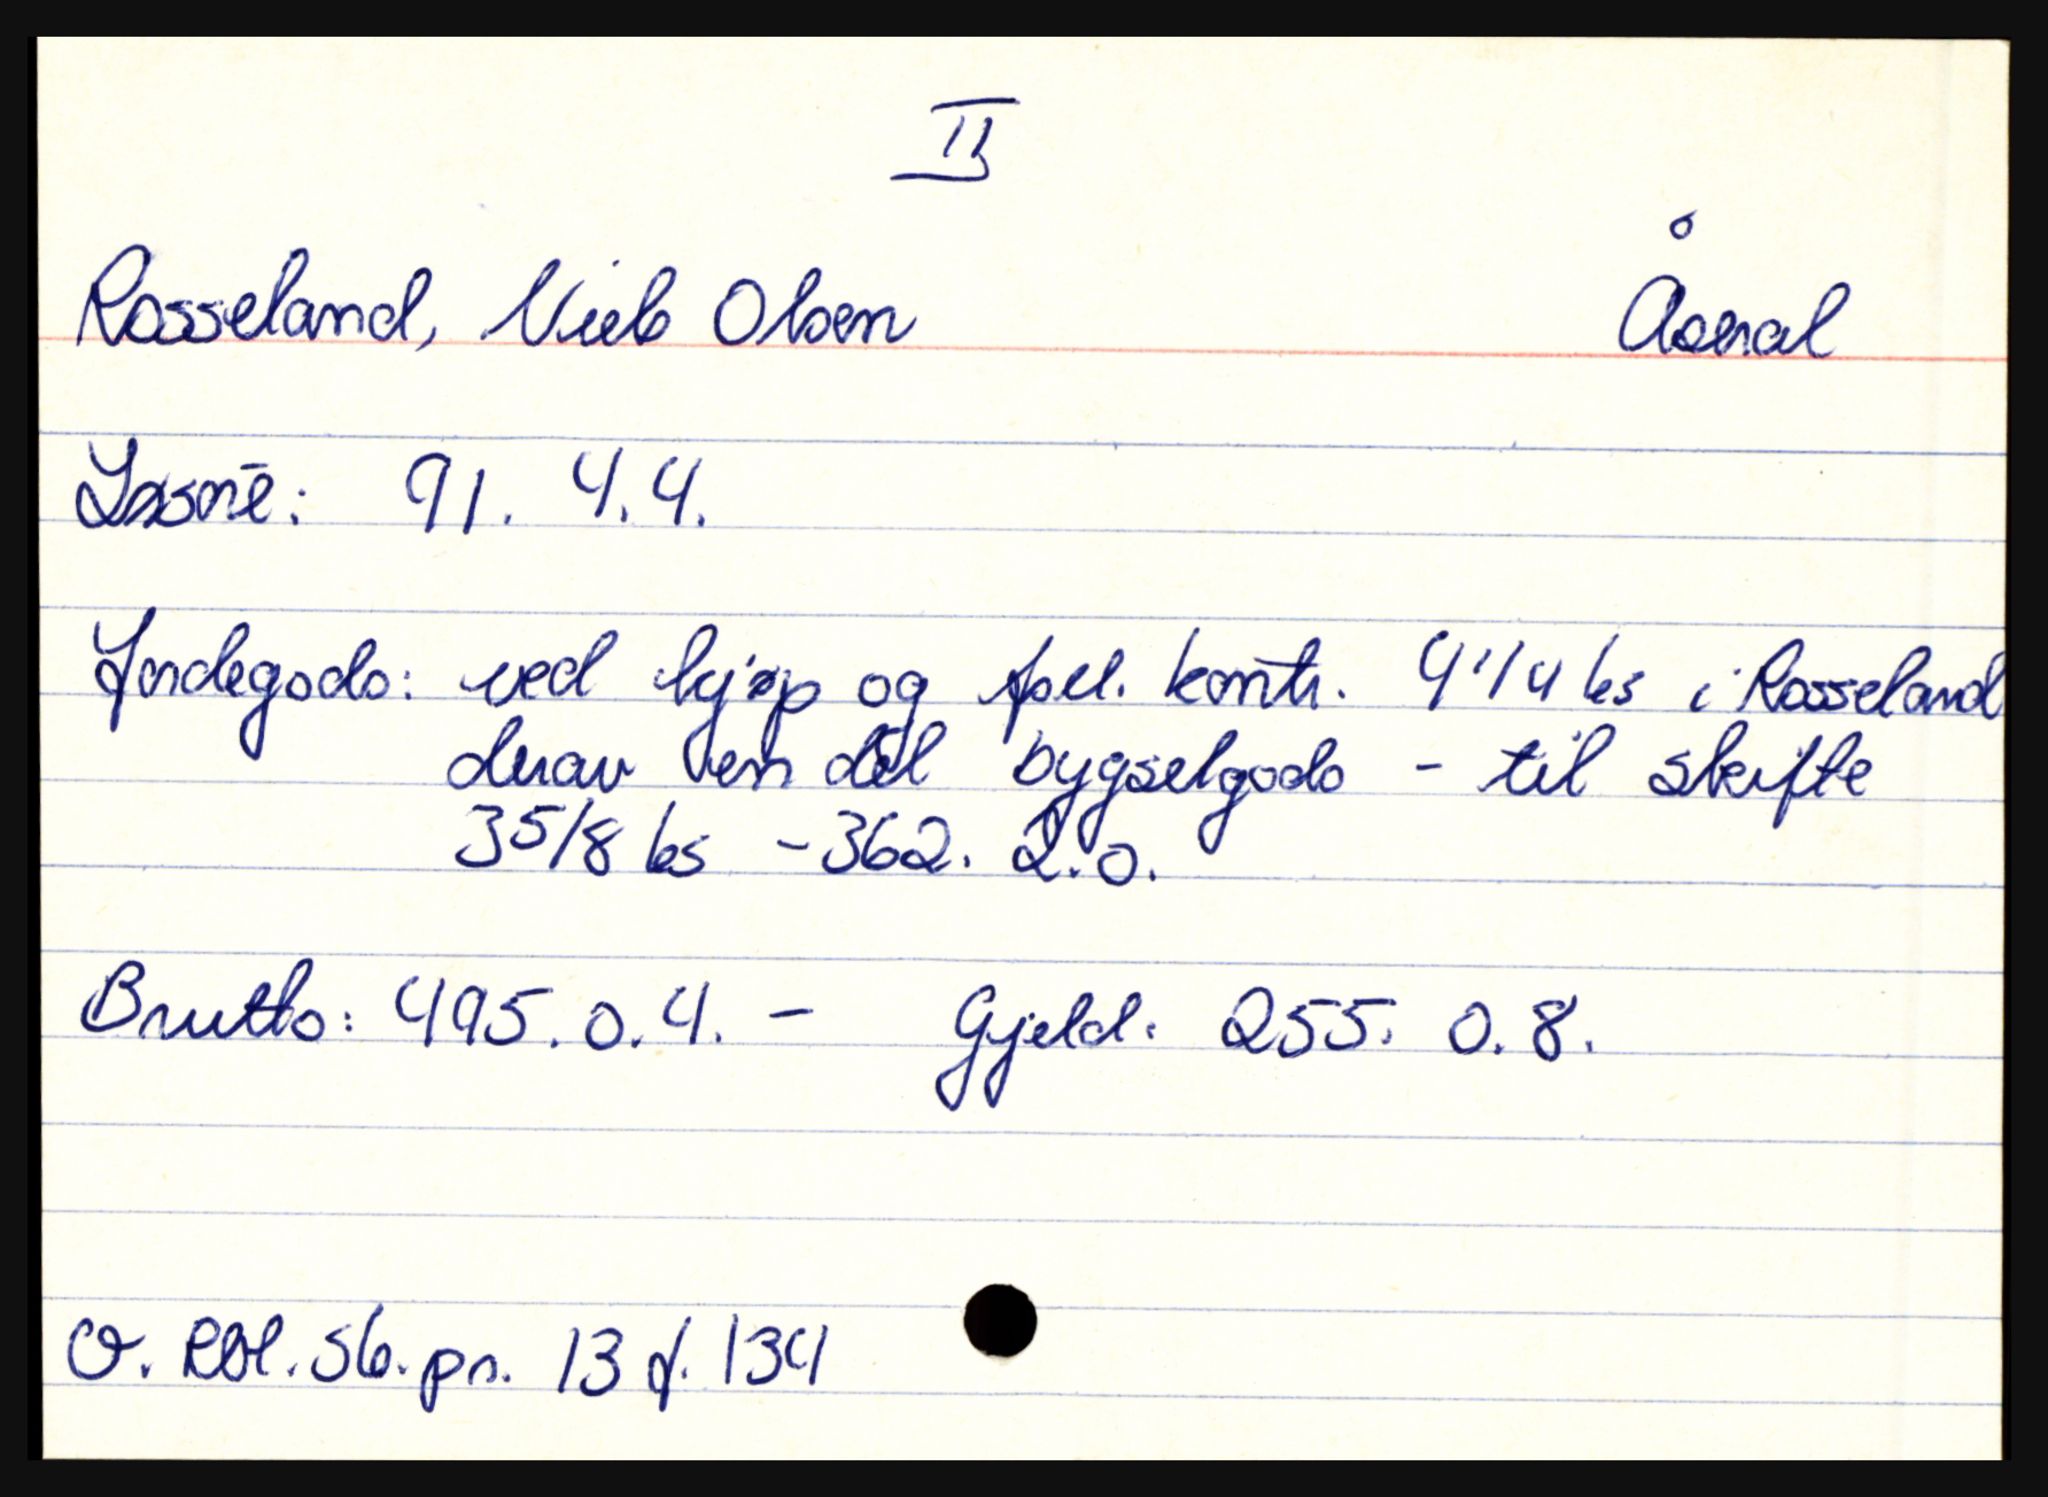 II
Å
Rosseland, Niels Olsen Åseral
Løsøre: 91. 4.4.
Jordegods: ved kjøp og kontr. 4 1/4 ks i Rosseland
derav en del bygselgods - til skifte
3 5/8 ks - 362. 2.0.
Brutto: 495. 0. 4. - Gjeld: 255. 0. 8.
Rbl. sk. pr. 13 f. 134